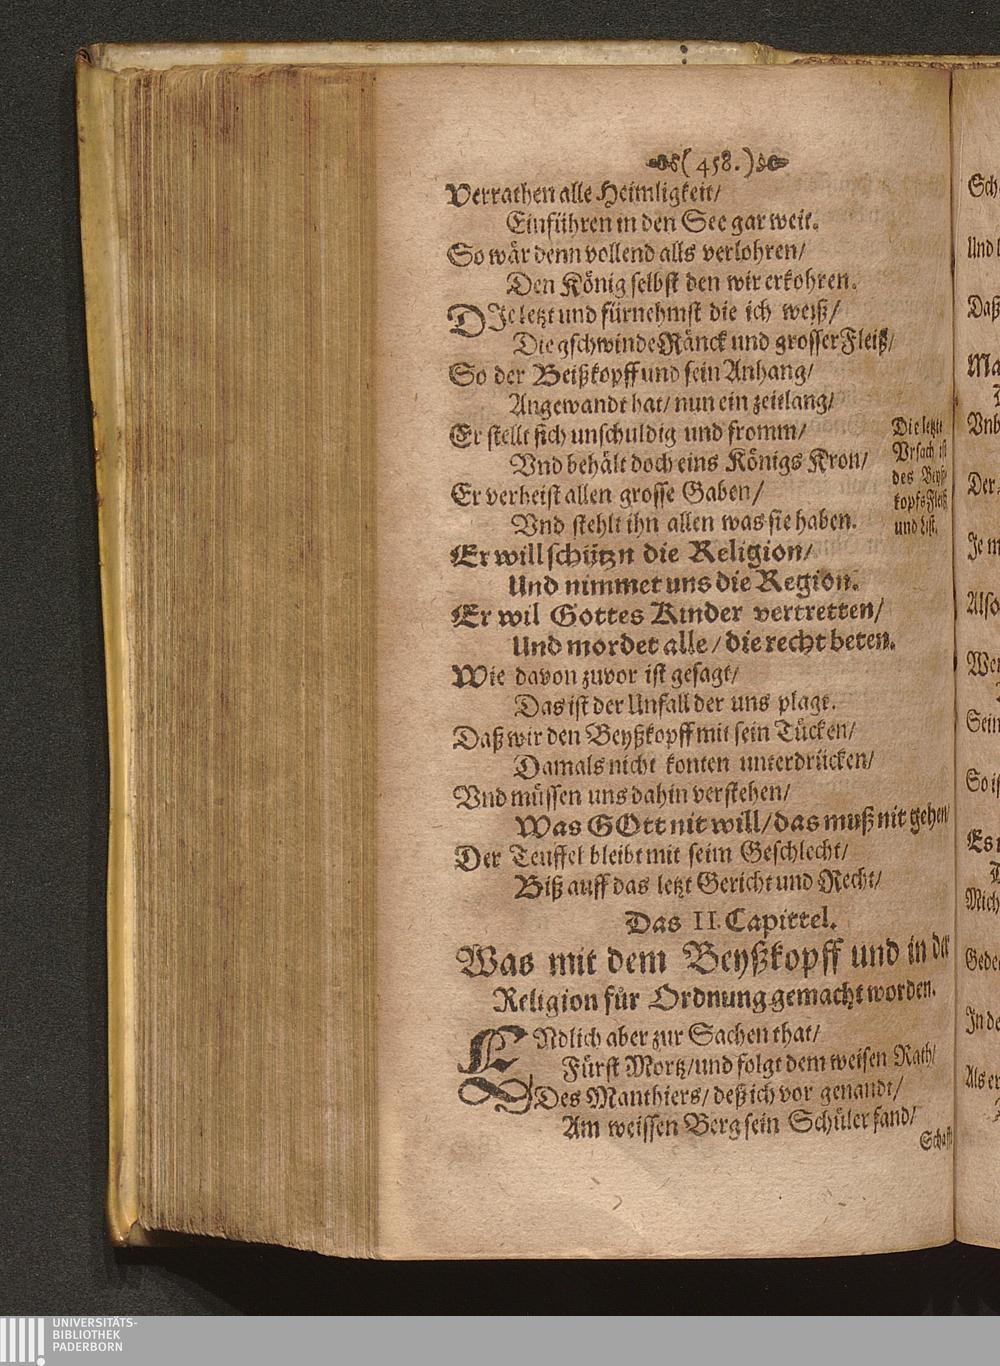 (458.)
Verrathen alle Heimligkeit/
Einführen in den See gar weit.
So wår denn vollend alls verlohren/
Den König selbst den wir erkohren.
DJe letzt und fürnehmst die ich weiß/
Die gschwinde Ränck und grosser Fleiß/
So der Beißkopff und sein Anhang/
Angewandt hat/ nun ein zeitlang/
Er stellt sich unschuldig und fromm/
Vnd behält doch eins Königs Kron/
Er verheist allen grosse Gaben/
Vnd stehlt ihn allen was sie haben.
Die letzte
Vrsach ist
des Beyß-
kopfs Fleiß
und List.
Er will schützn die Religion/
Und nimmet uns die Region.
Er wil Gottes Kinder vertretten/
Und mordet alle/ die recht beten.
Wie davon zuvor ist gesagt/
Das ist der Unfall der uns plagt.
Daß wir den Beyßkopff mit sein Tücken/
Damals nicht konten unterdrücken/
Vnd müssen uns dahin verstehen/
Was GOtt nit will/ das muß nit gehen/
Der Teuffel bleibt mit seim Geschlecht/
Biß auff das letzt Gericht und Recht/
Das II. Capittel.
Was mit dem Beyßkopff und in der
Religion für Ordnung gemacht worden.
ENdlich aber zur Sachen that/
Fürst Mortz/ und folgt dem weisen Rath/
Des Manthiers/ deß ich vor genandt/
Am weissen Berg sein Schüler fand/
Schafft
Sch
Und
Daß
Ma
Vnb
Der
Je m
Also
Wei
Sein
So is
Es
Mich
Gede
In de
Als er
UNIVERSITÄTS-
BIBLIOTHEK
PADERBORN